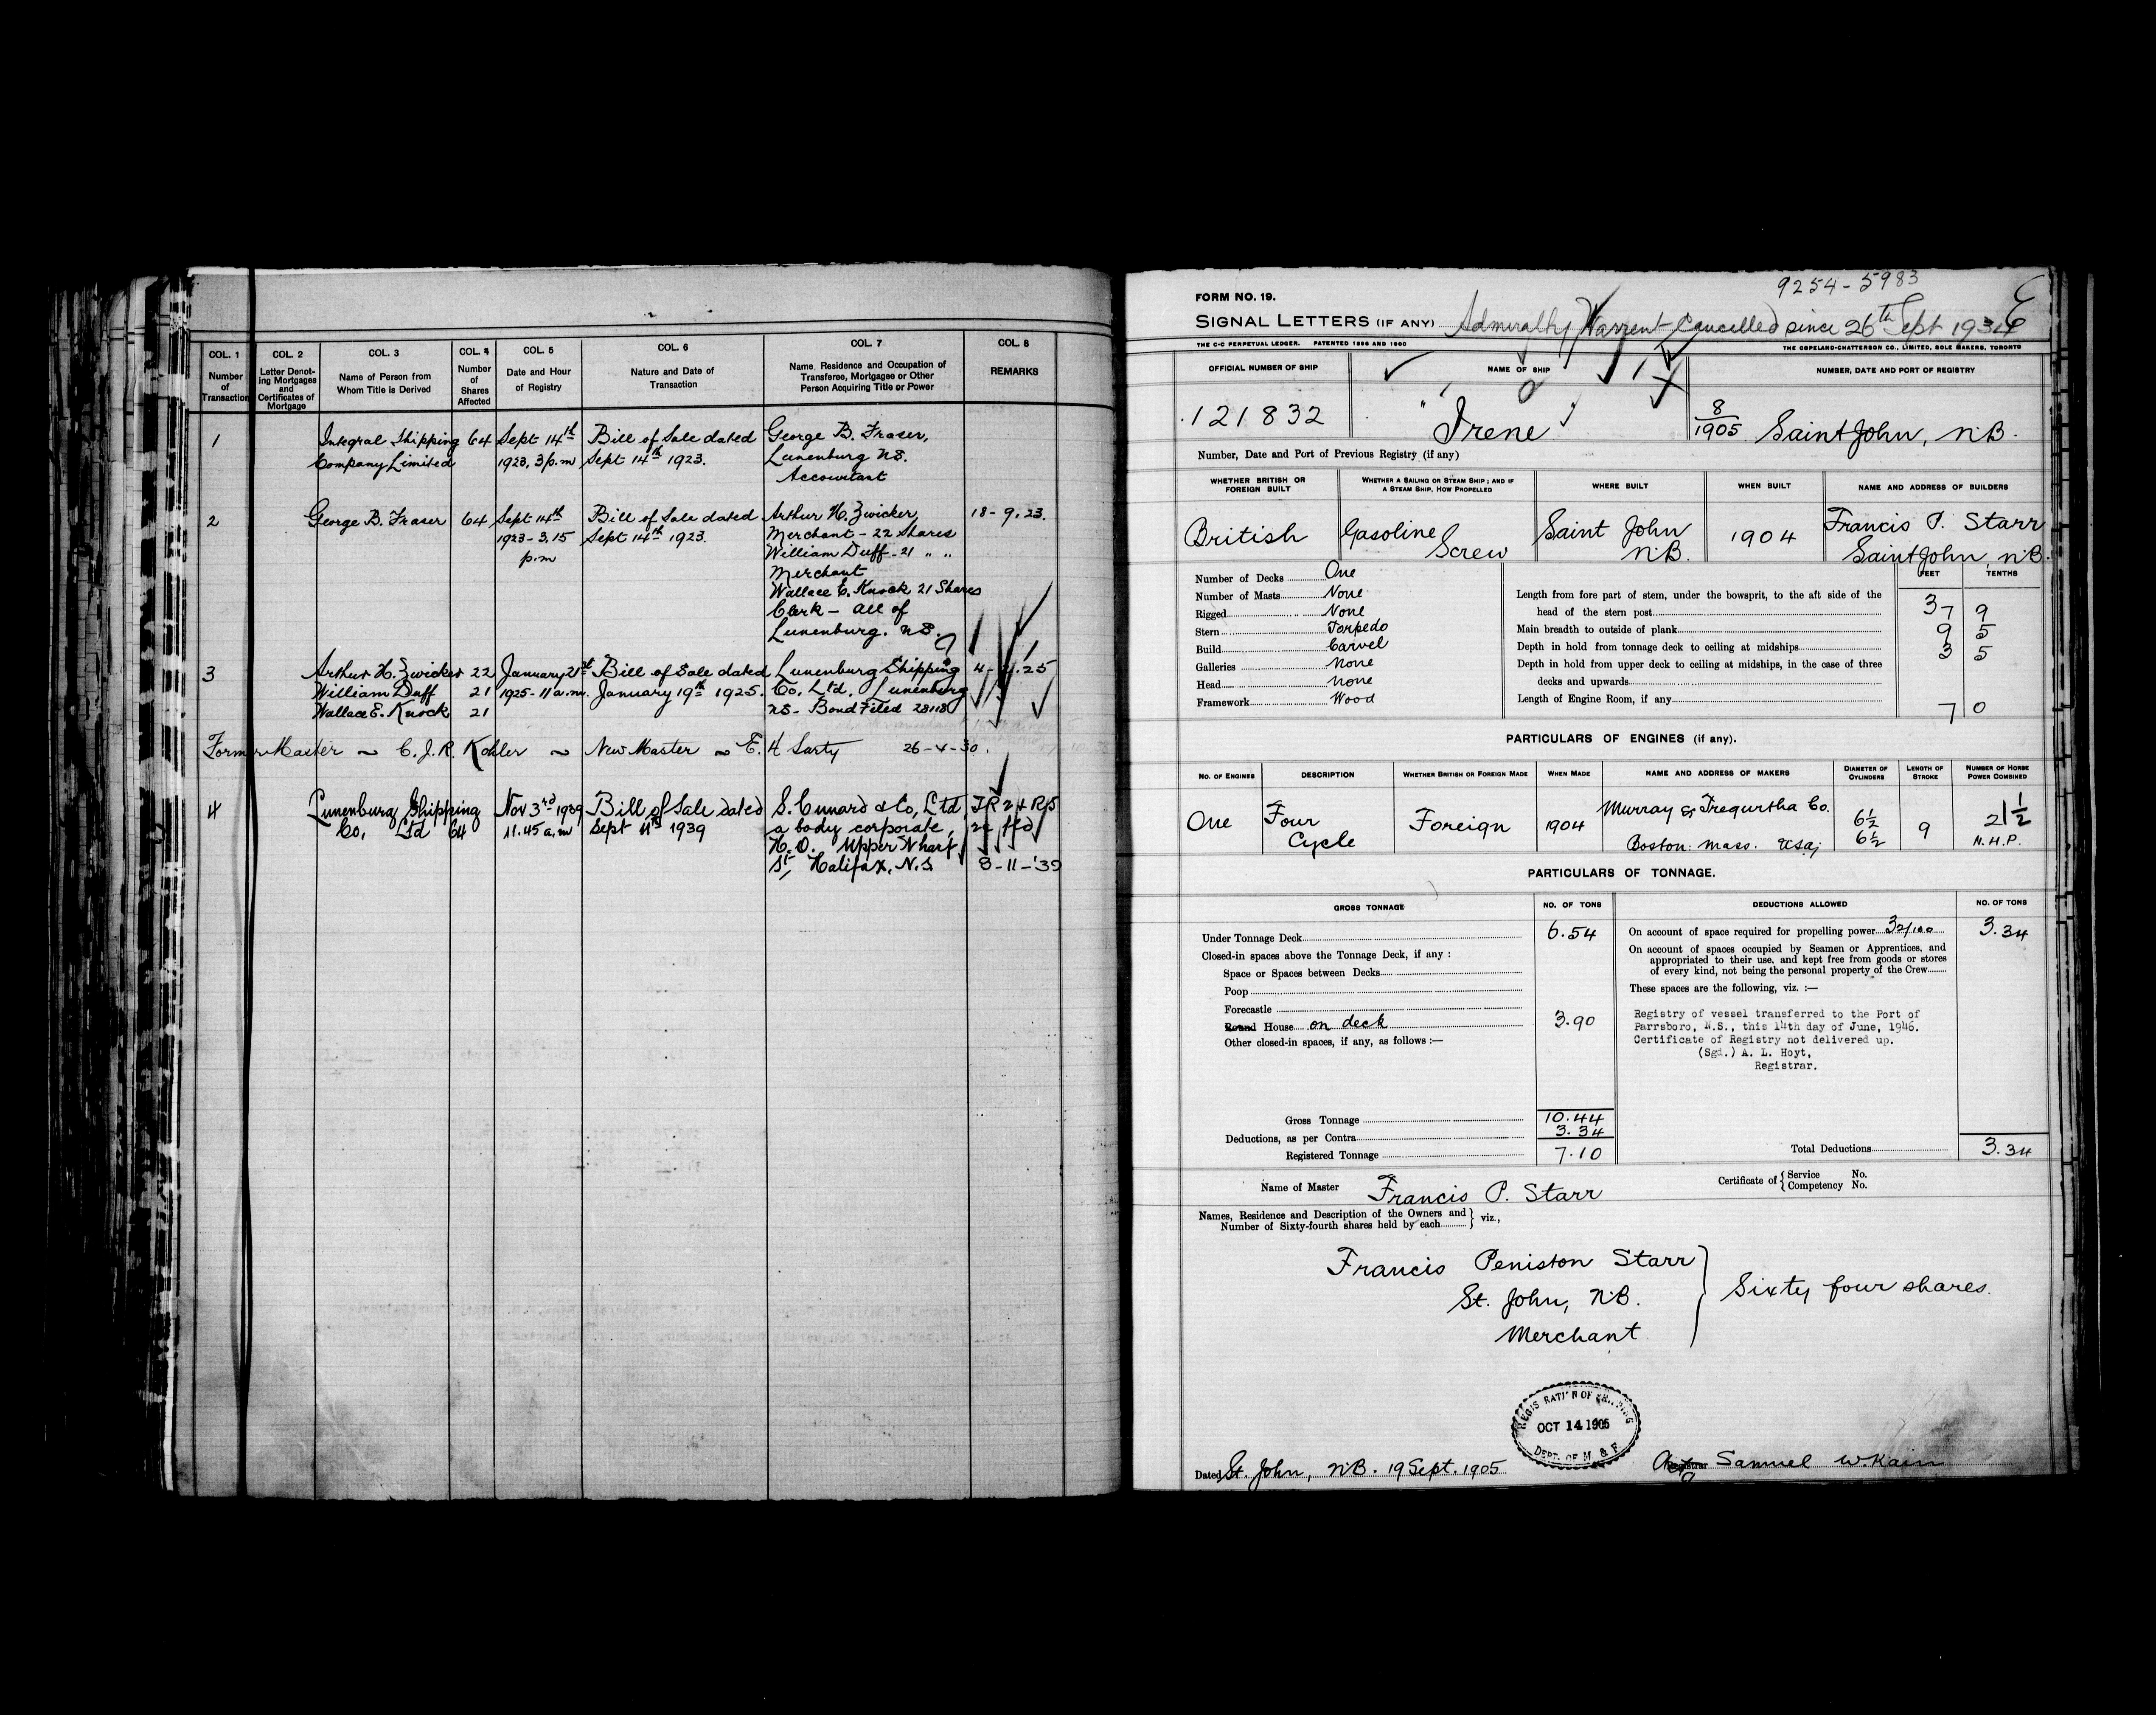 COL. 1 COL. 2 COL. 3 COL. 4 COL. 5 COL. 6 COL. 7 COL. 8
Number of Transaction
Letter Denoting Mortgages and Certificates of Mortgage
Name of Person from Whom Title is Derived
Number of Shares Affected
Date and Hour of Registry
Nature and Date of Transaction
Name, Residence and Occupation of Transferee, Mortgagee or Other Person Acquiring Title or Power
REMARKS
1 Integral Shipping 64 Sept 14th Bill of Sale dated George B. Fraser,
Company Limited 1923, 3 p.m Sept 14th 1923. Lunenburg NS.
Accountant
2 George B. Fraser 64 Sept 14th Bill of Sale dated Arthur H. Zwicker, 18-9.23.
1923-3.15 Sept 14th 1923. Merchant - 22 Shares
p.m William Duff - 21 " "
Merchant
Wallace E. Knock 21 Shares
Clerk - all of
Lunenburg. NS.
3 Arthur H. Zwicker 22 January 21st Bill of Sale dated Lunenburg Shipping
William Duff 21 1925-11 a.m. January 19th 1925. Co. Ltd. Lunenburg
Wallace E. Knock 21 NS- Bond Filed 28118
Former Master ~ C. J. R. Kohler ~ New Master ~ E. H Sarty 26-4-30.
4 Lunenburg Shipping Nov 3rd 1939 Bill of Sale dated S. Cunard & Co, Ltd
Co, Ltd 64 11.45 a.m Sept 11th 1939 a body corporate,
H.O. Upper Wharf
St, Halifax, N.S. 8-11-'39
9254-5983
FORM NO. 19.
SIGNAL LETTERS (IF ANY) Admiralty Warrent Cancelled since 26th Sept 1934
E
THE C-C PERPETUAL LEDGER. PATENTED 1896 AND 1900 THE COPELAND-CHATTERSON CO., LIMITED, SOLE MAKERS, TORONTO
OFFICIAL NUMBER OF SHIP NAME OF SHIP NUMBER, DATE AND PORT OF REGISTRY
121832 "Irene" 8/1905 Saint John, N.B.
Number, Date and Port of Previous Registry (if any)
WHETHER BRITISH OR FOREIGN BUILT
WHETHER A SAILING OR STEAM SHIP; AND IF A STEAM SHIP, HOW PROPELLED
WHERE BUILT WHEN BUILT NAME AND ADDRESS OF BUILDERS
British Gasoline Screw Saint John N.B. 1904 Francis P. Starr
Saint John, N.B.
FEET TENTHS
Number of Decks One
Number of Masts None
Rigged None
Stern Torpedo
Build Carvel
Galleries None
Head None
Framework Wood
Length from fore part of stem, under the bowsprit, to the aft side of the
head of the stern post 37 9
Main breadth to outside of plank 9 5
Depth in hold from tonnage deck to ceiling at midships 3 5
Depth in hold from upper deck to ceiling at midships, in the case of three
decks and upwards
Length of Engine Room, if any 7 0
PARTICULARS OF ENGINES (if any).
NO. OF ENGINES DESCRIPTION WHETHER BRITISH OR FOREIGN MADE WHEN MADE NAME AND ADDRESS OF MAKERS DIAMETER OF CYLINDERS LENGTH OF STROKE NUMBER OF HORSE POWER COMBINED
One Four Cycle Foreign 1904 Murray & Tregurtha Co. 6½ 9 21½
Boston. Mass. USA; 6½ N.H.P.
PARTICULARS OF TONNAGE.
GROSS TONNAGE NO. OF TONS DEDUCTIONS ALLOWED NO. OF TONS
Under Tonnage Deck 6.54
Closed-in spaces above the Tonnage Deck, if any :
Space or Spaces between Decks
Poop
Forecastle
Round House on deck 3.90
Other closed-in spaces, if any, as follows :—
Gross Tonnage 10.44
Deductions, as per Contra 3.34
Registered Tonnage 7.10
On account of space required for propelling power 32/100 3.34
On account of spaces occupied by Seamen or Apprentices, and
appropriated to their use, and kept free from goods or stores
of every kind, not being the personal property of the Crew
These spaces are the following, viz. :—
Registry of vessel transferred to the Port of
Parrsboro, N.S., this 14th day of June, 1946.
Certificate of Registry not delivered up.
(Sgd.) A. L. Hoyt,
Registrar.
Total Deductions 3.34
Name of Master Francis P. Starr
Certificate of { Service No.
Competency No.
Names, Residence and Description of the Owners and
Number of Sixty-fourth shares held by each } viz.,
Francis Peniston Starr
St. John, N.B. } Sixty four shares.
Merchant
OCT 14 1905
DEPT. OF M & F
Dated St. John, N.B. 19 Sept. 1905 Actg Registrar Samuel W. Kain